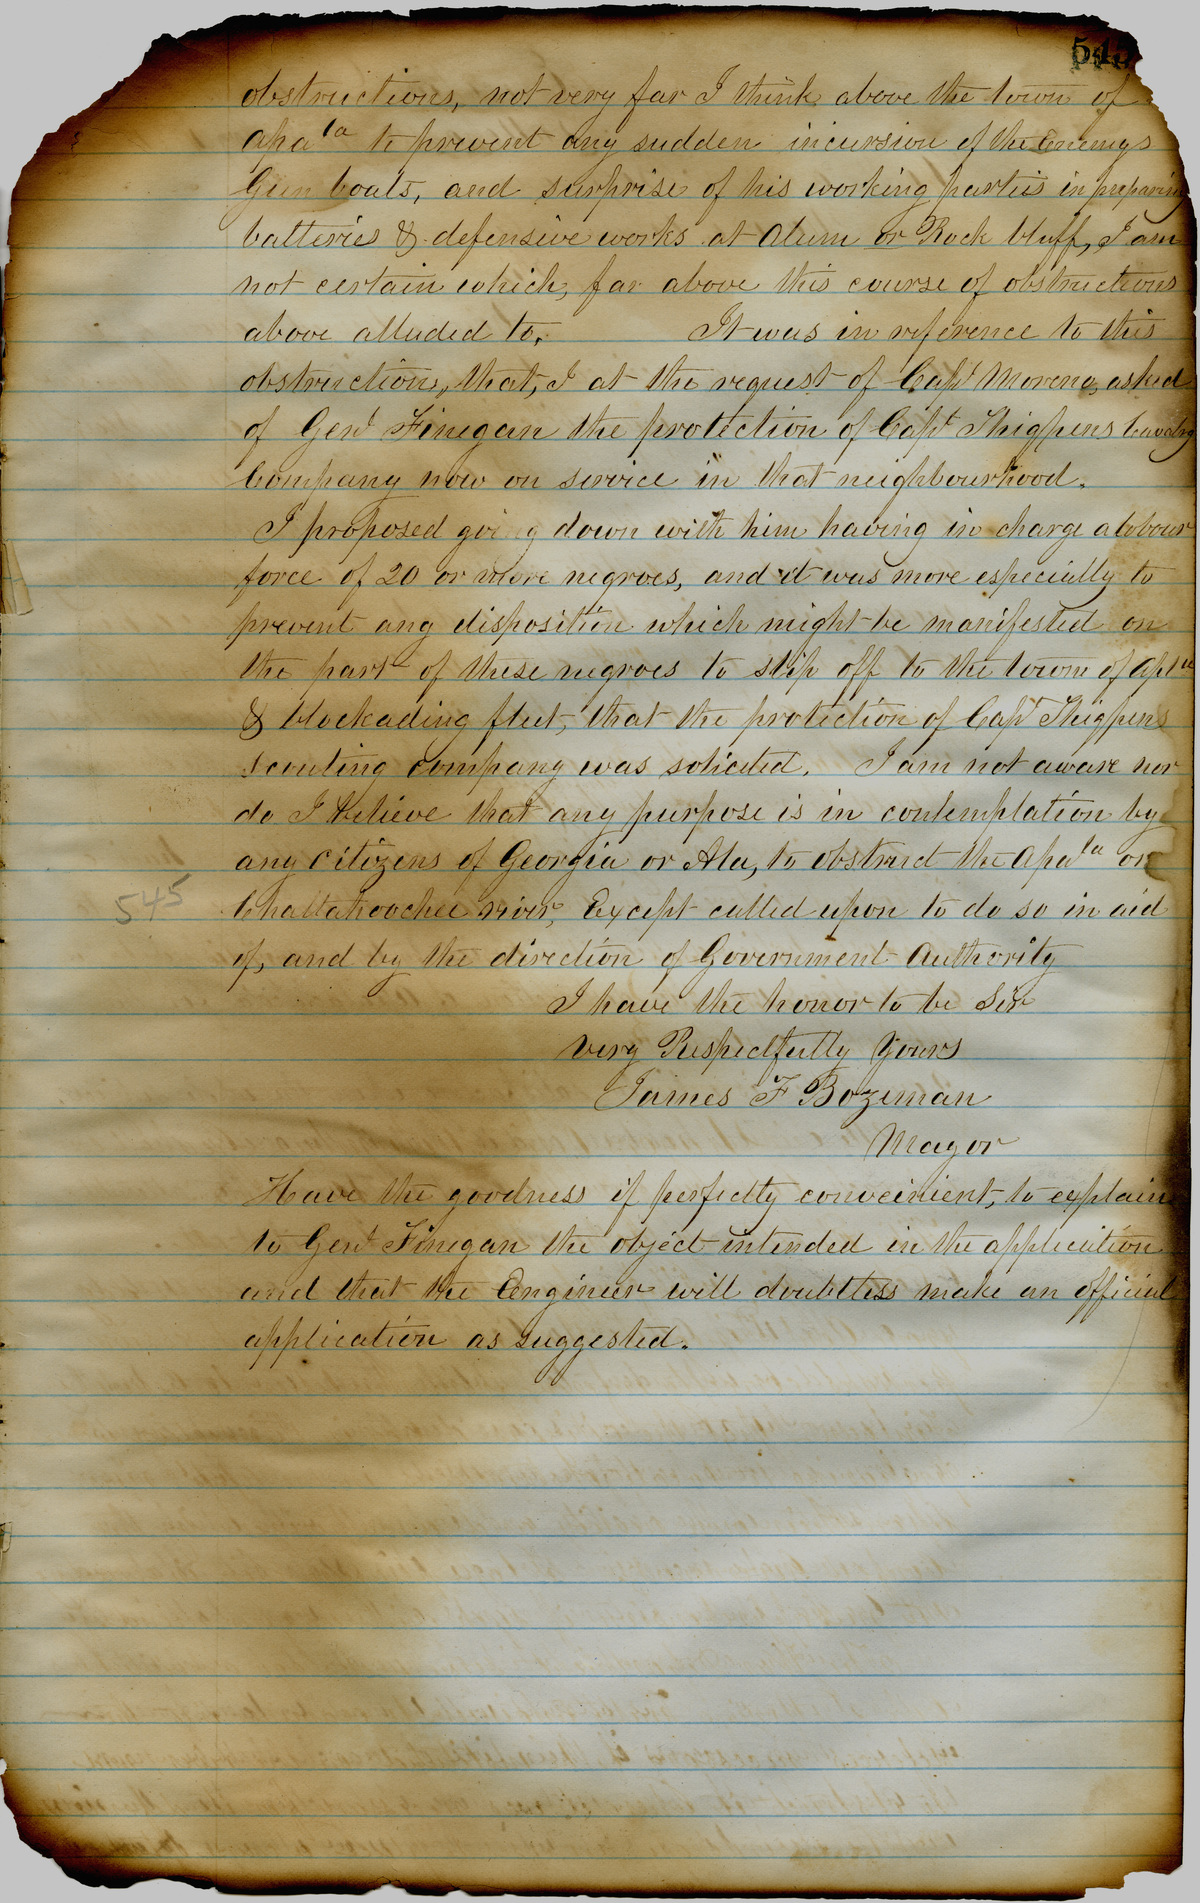 545
obstructions, not very far I think above the town of
Apa^la to prevent any sudden incursion of the Enemys
Gun boats, and surprise of his working parties in preparing
batteries & defensive works at Alum or Rock bluff, I am
not certain which, far above this course of obstructions
above alluded to. It was in reference to this
obstruction, that, I at the request of Capt Moreno, asked
of Genl Finegan the protection of Capt Thigpens Cavalry
Company now on service in that neighbourhood.
I proposed going down with him having in charge a labour
force of 20 or more negroes, and it was more especially to
prevent any disposition which might be manifested on
the part of these negroes to slip off to the town of Apla
& blockading fleet, that the protection of Capt Thigpens
scouting company was solicited. I am not aware nor
do I believe that any purpose is in contemplation by
any citizens of Georgia or Ala, to obstruct the Apa^la or
545
Chattahoochee river, Except called upon to do so in aid
of, and by the direction of Government Authority
I have the honor to be Sir
Very Respectfully Yours
James F Bozeman
Mayor
Have the goodness if perfectly convenient, to explain
to Genl Finegan the object intended in the application
and that the Engineer will doubtless make an official
application as suggested.